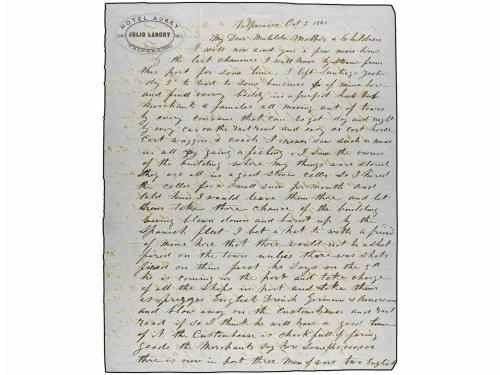 HOTEL AUBRY
JULIO LANDRY
VALPARAISO
Valparaiso Oct 3 1865
My Dear Matilda Mother & Children
I will now send you a few more lines
the last chance I will have by steamer from
this port for some time. I left Santiago yester
day 2nd to tend to some business of mine here
and find every body in a perfect hub bub
Merchants & families all moving out of town
by every conveance that can be got day and night
by every car on the rail road and every ox cart horse
Cart waggon & coach I never saw such a muss
in all my going a fishing. I saw the owner
of the building where my things were stored
they are all in a good stone celler so I hired
the celler for a small sum per month and
told him I would leave them there and let
them take there chance of the building
being blown down and burnt up by the
Spanish fleet I bet a hat to with a friend
of mine here that there would not be a shot
fired on the town unless there was shots
fired on them first, he says on the 9th
he is coming in the port and take charge
of all the ships in port and take them
as prizes English French German & American
and blow away on the customhouse and rail
road if so I think he will have a good time
of it the Customhouse is chock full of foring
goods the Merchants say
there is now in port three Men of wars two English